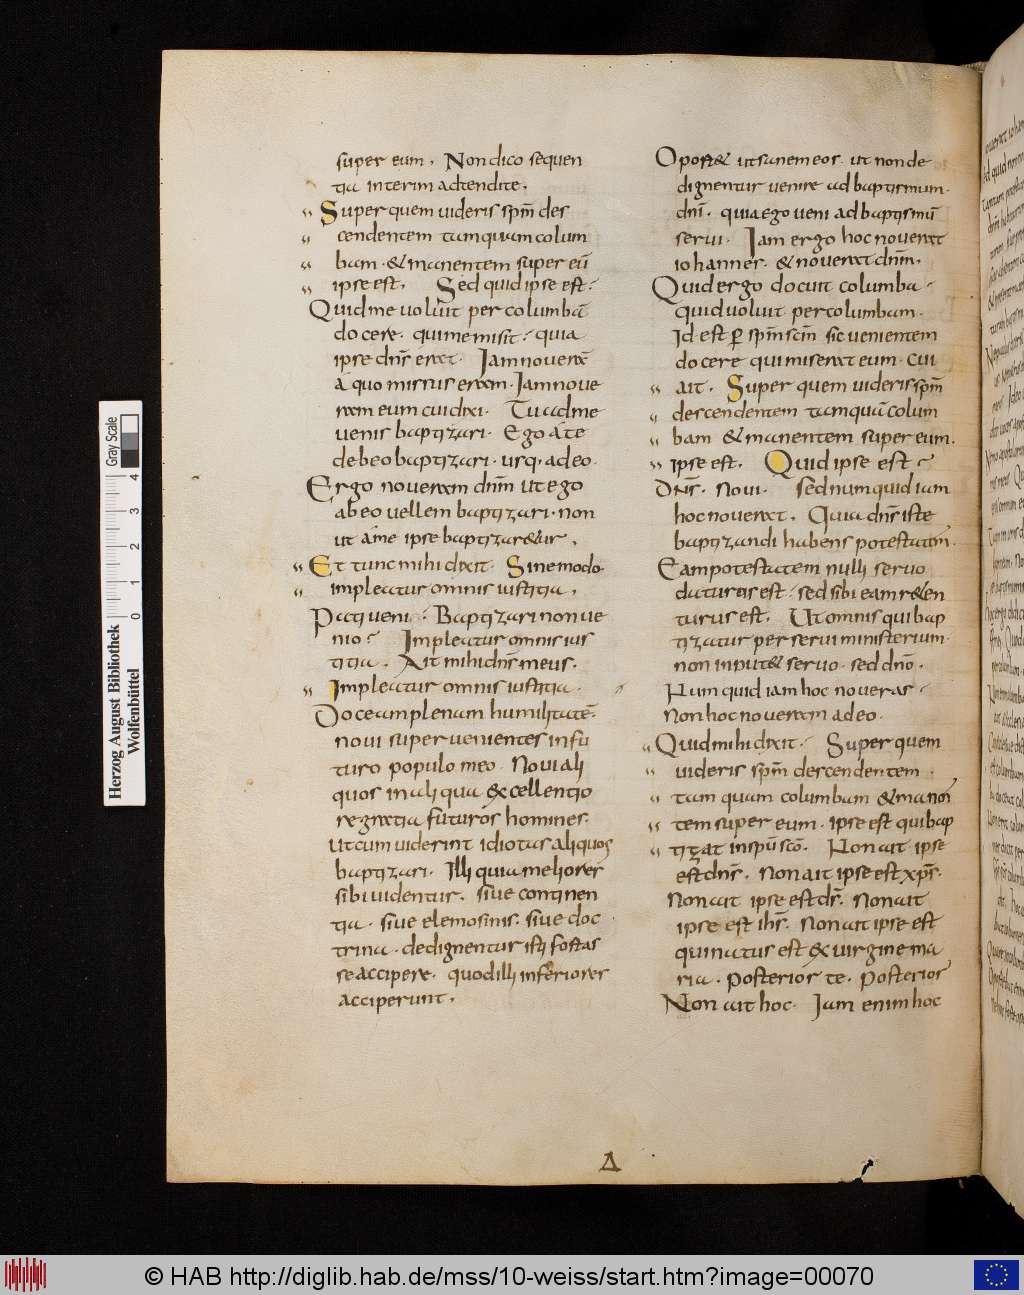 super eum. Non dico sequen
tia interim adtendite.
Super quem uideris spm̄ des
cendentem tamquam colum
bam. & manentem super eū
ipse est. Sed quid ipse est?
Quid me uoluit per columbā
docere. qui me misit? quia
ipse dn̄s erat. Iam nouerā
a quo missus eram. Iam noue
ram eum cui dixi. Tu ad me
uenis baptizari. Ego a te
debeo baptizari. usq; adeo.
Ergo noueram dnm̄ ut ego
ab eo uellem baptizari. non
ut a me ipse baptizar&ur.
Et tunc mihi dixit. Sine modo.
impleatur omnis iustitia.
Pati ueni? Baptizari non ue
nio? Impleatur omnis ius
titia. Ait mihi dn̄s meus.
Impleatur omnis iustitia.
Doceam plenam humilitatē.
noui superuenientes in fu
turo populo meo. Noui ali
quos in aliqua excellentio
re gratia futuros homines.
Ut cum uiderint idiotas aliquos
baptizari. Illi quia meliores
sibi uidentur. siue continen
tia. siue elemosinis. siue doc
trina. dedignentur isti fortas
se accipere. quod illi inferiores
acciperunt.
Oport& ut sanem eos. ut non de
dignentur uenire ad baptismum.
dnī. quia ego ueni ad baptismū
serui. Iam ergo hoc nouerat
iohannes. & nouerat dnm̄.
Quid ergo docuit columba?
quid uoluit per columbam.
Id est ꝑ spm̄ scm̄ sic uenientem
docere qui miserat eum. cui
ait. Super quem uideris spm̄
descendentem tamquā colum
bam & manentem super eum.
ipse est. Quid ipse est?
Dn̄s. Noui. sed numquid iam
hoc nouerat. Quia dn̄s iste
baptizandi habens potestatem.
Eam potestatem nulli seruo
daturus est? sed sibi eam r&en
turus est. Ut omnis qui bap
tizatur per serui ministerium.
non imput& seruo. sed dnō.
Numquid iam hoc noueras?
Non hoc noueram adeo.
Quid mihi dixit. Super quem
uideris spm̄ descendentem.
tam quam columbam & manen
tem super eum. ipse est qui bap
tizat in spū scō. Non ait ipse
est dn̄s. Non ait ipse est xp̄s.
Non ait ipse est ds̄. Non ait
ipse est ihs̄. Non ait ipse est
qui natus est ex uirgine ma
ria. Posterior te. Posterior
Non ait hoc. Iam enim hoc
Herzog August Bibliothek
Wolfenbüttel
Gray Scale
0 1 2 3 4
© HAB http://diglib.hab.de/mss/10-weiss/start.htm?image=00070